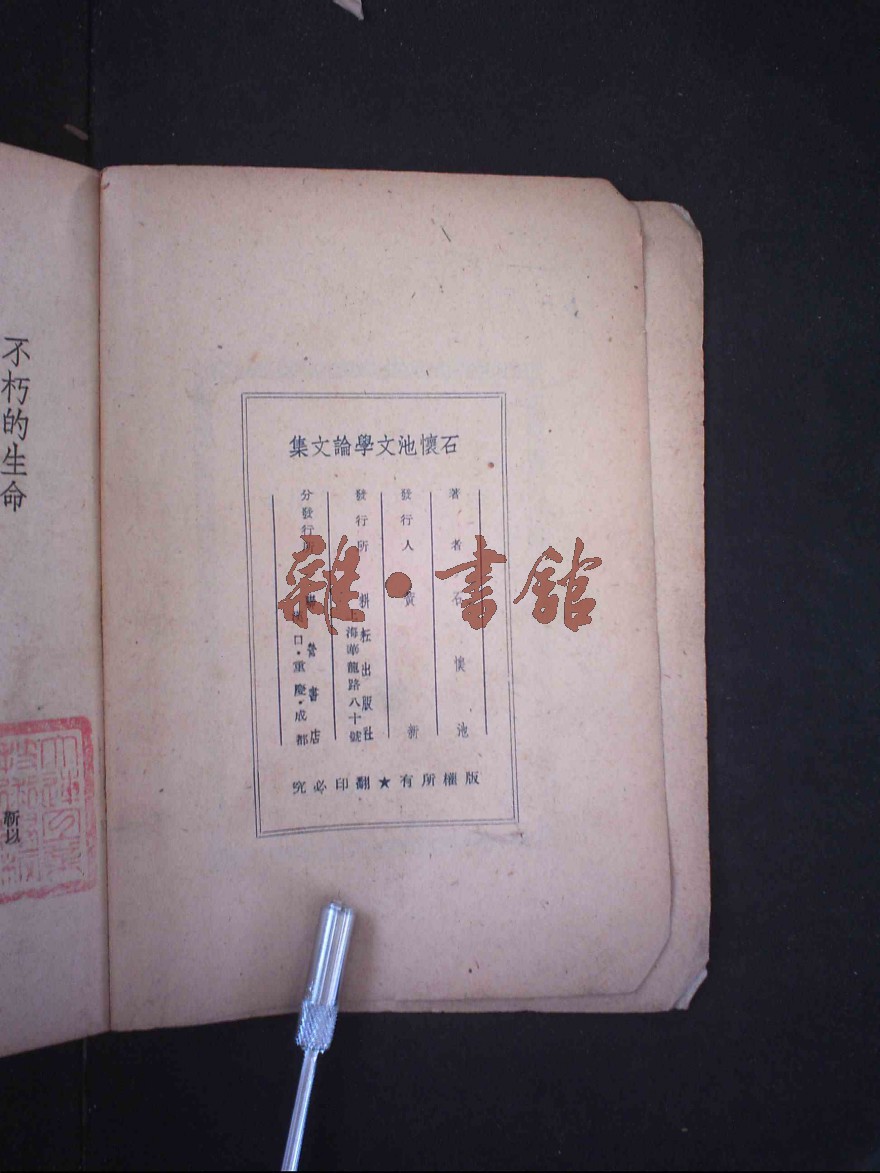 石懷池文學論文集
著者 石懷池
發行人 黃新
發行所 耕耘出版社
海華龍路八十號
分發行所 聯營書店
漢口·重慶·成都
版權所有★翻印必究
雜·書館
不朽的生命
靳以